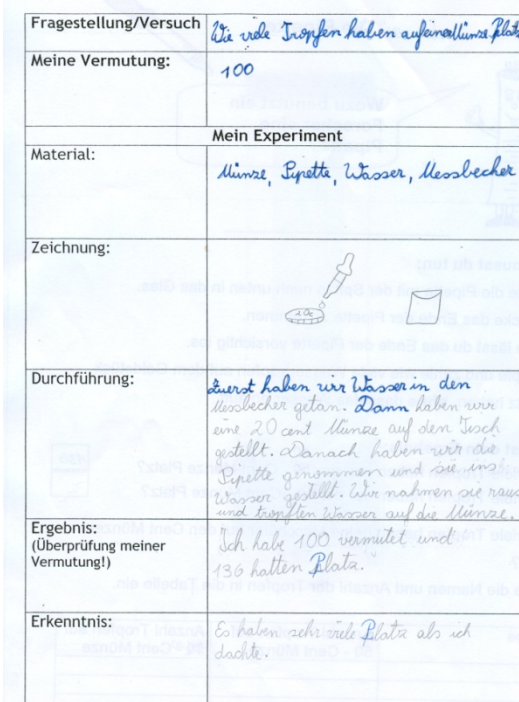 Fragestellung/Versuch Wie viele Tropfen haben auf einer Münze Platz
Meine Vermutung: 100
Mein Experiment
Material: Münze, Pipette, Wasser, Messbecher
Zeichnung:
20c
Durchführung: Zuerst haben wir Wasser in den
Messbecher getan. Dann haben wir
eine 20 cent Münze auf den Tisch
gestellt. Danach haben wir die
Pipette genommen und sie ins
Wasser gestellt. Wir nahmen sie raus
und tropften Wasser auf die Münze.
Ergebnis: Ich habe 100 vermutet und
(Überprüfung meiner
Vermutung!) 136 hatten Platz.
Erkenntnis: Es haben sehr viele Platz als ich
dachte.